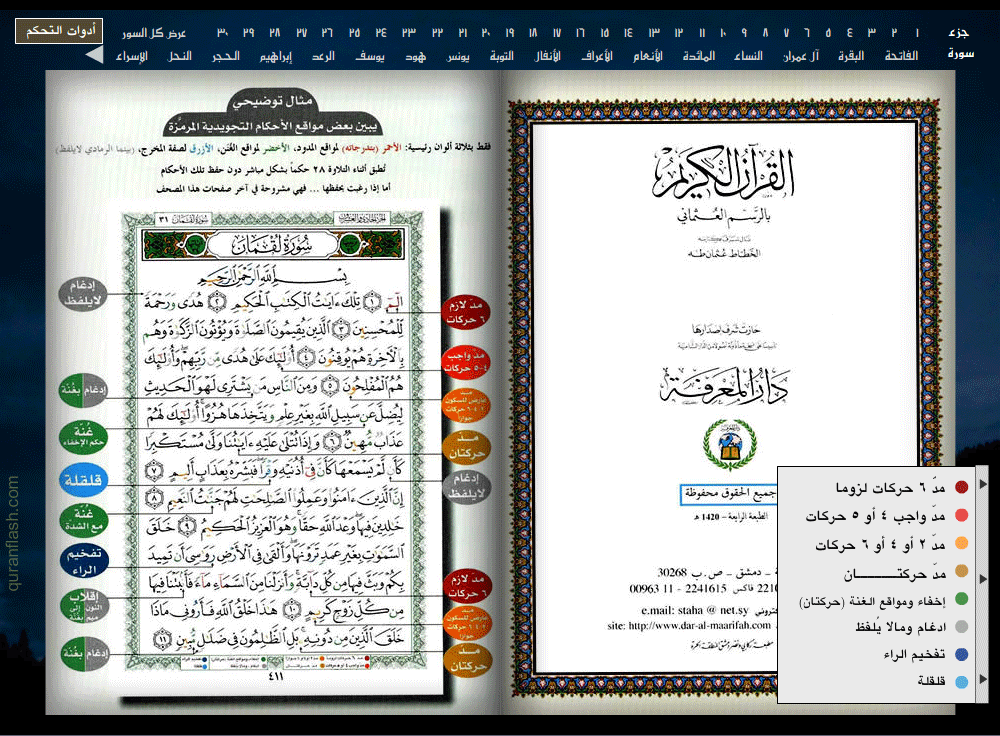 أدوات التحكم
جزء ١ ٢ ٣ ٤ ٥ ٦ ٧ ٨ ٩ ١٠ ١١ ١٢ ١٣ ١٤ ١٥ ١٦ ١٧ ١٨ ١٩ ٢٠ ٢١ ٢٢ ٢٣ ٢٤ ٢٥ ٢٦ ٢٧ ٢٨ ٢٩ ٣٠ عرض كل السور
سورة الفاتحة البقرة آل عمران النساء المائدة الأنعام الأعراف الأنفال التوبة يونس هود يوسف الرعد إبراهيم الحجر النحل الإسراء
القرآن الكريم
بالرسم العثماني
الخطاط عثمان طه
حازت شرف إصدارها
دار المعرفة
جميع الحقوق محفوظة
الطبعة الرابعة - 1420 هـ
دمشق - ص.ب 30268
فاكس 2241615 - 11 00963
e.mail: staha @ net.sy
site: http://www.dar-al-maarifah.com
مدّ ٦ حركات لزوما
مدّ واجب ٤ أو ٥ حركات
مدّ ٢ أو ٤ أو ٦ حركات
مدّ حركتـــــــان
إخفاء ومواقع الغنة (حركتان)
ادغام ومالا يُلفظ
تفخيم الراء
قلقلة
مثال توضيحي
يبين بعض مواقع الأحكام التجويدية المرمّزة
فقط بثلاثة ألوان رئيسية: الأحمر (بتدرجاته) لمواقع المدود، الأخضر لمواقع الغنن، الأزرق لصفة المخرج، (بينما الرمادي لايلفظ)
تُطبق أثناء التلاوة ٢٨ حكماً بشكل مباشر دون حفظ تلك الأحكام
أما إذا رغبت بحفظها ... فهي مشروحة في آخر صفحات هذا المصحف
سورة لقمان ٣١
سورة لقمان
بسم الله الرحمن الرحيم
الٓمٓ ١ تِلْكَ ءَايَٰتُ ٱلْكِتَٰبِ ٱلْحَكِيمِ ٢ هُدًى وَرَحْمَةً
لِّلْمُحْسِنِينَ ٣ ٱلَّذِينَ يُقِيمُونَ ٱلصَّلَوٰةَ وَيُؤْتُونَ ٱلزَّكَوٰةَ وَهُم
بِٱلْءَاخِرَةِ هُمْ يُوقِنُونَ ٤ أُو۟لَٰٓئِكَ عَلَىٰ هُدًى مِّن رَّبِّهِمْ وَأُو۟لَٰٓئِكَ
هُمُ ٱلْمُفْلِحُونَ ٥ وَمِنَ ٱلنَّاسِ مَن يَشْتَرِى لَهْوَ ٱلْحَدِيثِ
لِيُضِلَّ عَن سَبِيلِ ٱللَّهِ بِغَيْرِ عِلْمٍ وَيَتَّخِذَهَا هُزُوًا أُو۟لَٰٓئِكَ لَهُمْ
عَذَابٌ مُّهِينٌ ٦ وَإِذَا تُتْلَىٰ عَلَيْهِ ءَايَٰتُنَا وَلَّىٰ مُسْتَكْبِرًا
كَأَن لَّمْ يَسْمَعْهَا كَأَنَّ فِىٓ أُذُنَيْهِ وَقْرًا فَبَشِّرْهُ بِعَذَابٍ أَلِيمٍ ٧
إِنَّ ٱلَّذِينَ ءَامَنُوا۟ وَعَمِلُوا۟ ٱلصَّٰلِحَٰتِ لَهُمْ جَنَّٰتُ ٱلنَّعِيمِ ٨
خَٰلِدِينَ فِيهَا وَعْدَ ٱللَّهِ حَقًّا وَهُوَ ٱلْعَزِيزُ ٱلْحَكِيمُ ٩ خَلَقَ
ٱلسَّمَٰوَٰتِ بِغَيْرِ عَمَدٍ تَرَوْنَهَا وَأَلْقَىٰ فِى ٱلْأَرْضِ رَوَٰسِىَ أَن تَمِيدَ
بِكُمْ وَبَثَّ فِيهَا مِن كُلِّ دَآبَّةٍ وَأَنزَلْنَا مِنَ ٱلسَّمَآءِ مَآءً فَأَنۢبَتْنَا فِيهَا
مِن كُلِّ زَوْجٍ كَرِيمٍ ١٠ هَٰذَا خَلْقُ ٱللَّهِ فَأَرُونِى مَاذَا
خَلَقَ ٱلَّذِينَ مِن دُونِهِۦ بَلِ ٱلظَّٰلِمُونَ فِى ضَلَٰلٍ مُّبِينٍ ١١
٤١١
مدّ لازم
٦ حركات
مدّ واجب
٤-٥ حركات
مدّ
عارض للسكون
٢-٤-٦ حركات
جوازاً
مدّ
حركتان
إدغام
لايلفظ
مدّ لازم
٦ حركات
مدّ
عارض للسكون
٢-٤-٦ حركات
جوازاً
مدّ
حركتان
إدغام
لايلفظ
إدغام بغنّة
غنّة
حكم الإخفاء
قلقلة
غنّة
مع الشدة
تفخيم
الراء
إقلاب
النون إلى
ميم بغنة
إدغام بغنّة
quranflash.com